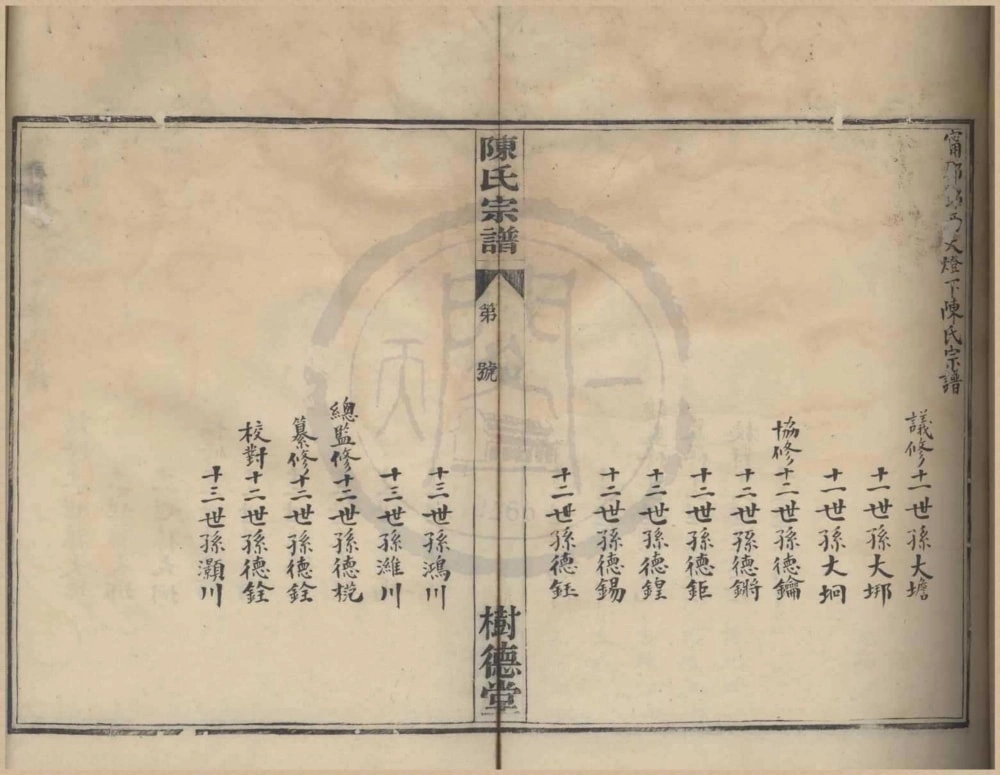 甯大燈下陳氏宗譜
議修十一世孫大墻
十一世孫大垹
十一世孫大坰
協修十二世孫德鑰
十二世孫德鏘
十二世孫德鉅
十二世孫德鍠
十二世孫德錫
十二世孫德鈺
陳氏宗譜
第 號
樹德堂
十三世孫鴻川
十三世孫濰川
總監修十二世孫德梲
纂修十二世孫德銓
校對十二世孫德銓
十三世孫灝川